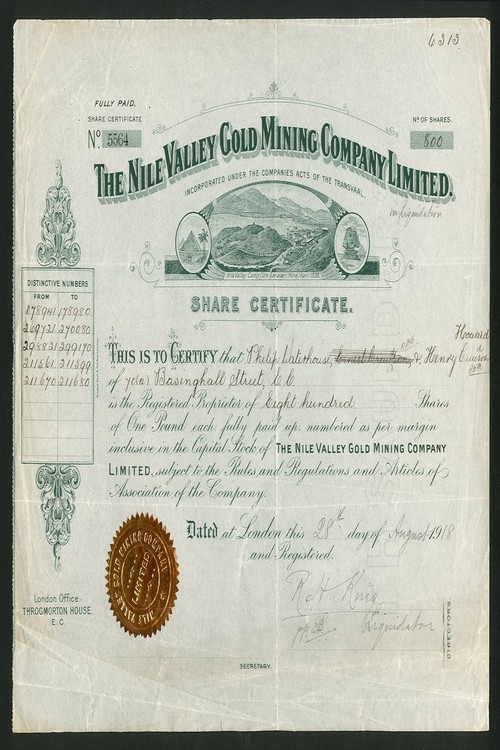 6313
FULLY PAID.
SHARE CERTIFICATE
No. 5564
No OF SHARES.
800
THE NILE VALLEY GOLD MINING COMPANY LIMITED.
INCORPORATED UNDER THE COMPANIES ACTS OF THE TRANSVAAL.
in liquidation
SHARE CERTIFICATE.
DISTINCTIVE NUMBERS
FROM TO
178941 178980
269721 270080
298831 299170
211561 211599
211670 211680
THIS IS TO CERTIFY that Philip Waterhouse, & Henry Howard
of Basinghall Street, E.C.
is the Registered Proprietor of Eight hundred Shares
of One Pound each fully paid up, numbered as per margin
inclusive in the Capital Stock of THE NILE VALLEY GOLD MINING COMPANY
LIMITED, subject to the Rules and Regulations and Articles of
Association of the Company.
Dated at London this 28th day of August 1918
and Registered.
London Office:
THROGMORTON HOUSE,
E.C.
Liquidator
DIRECTORS
SECRETARY.